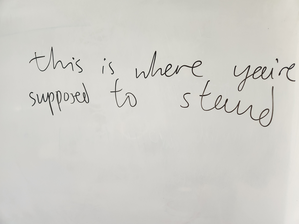 this is where you're
supposed to stand